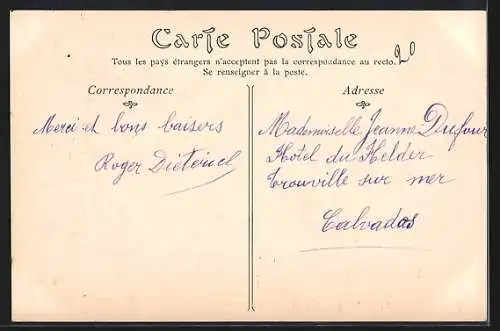 Carte Postale
20
Tous les pays étrangers n'acceptent pas la correspondance au recto.
Se renseigner à la poste.
Correspondance
Merci et bons baisers
Roger
Adresse
Mademoiselle Jeanne Dufour
Hôtel du Helder
Trouville sur mer
Calvados